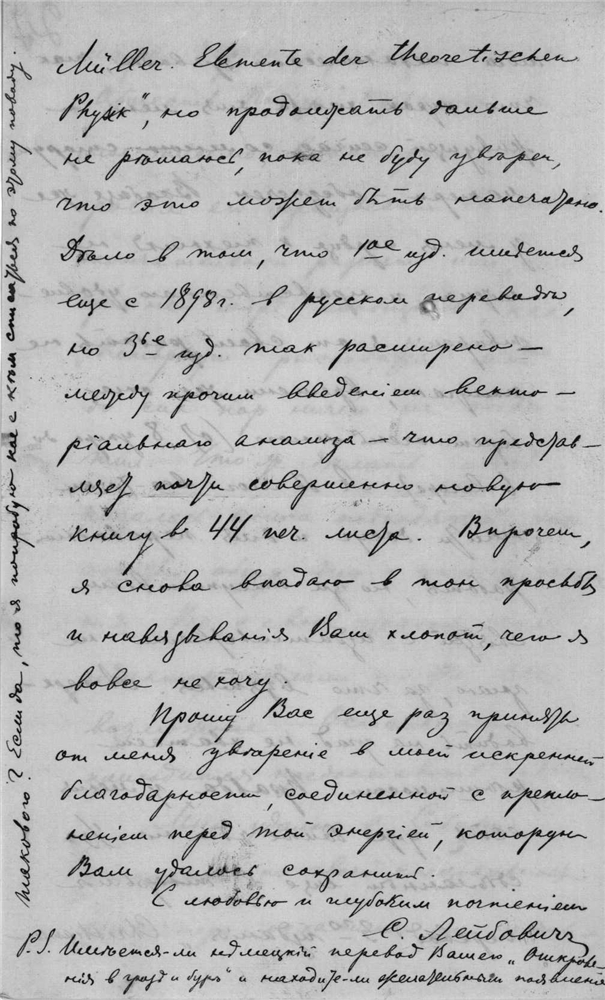 Müller. Elemente der theoretischen
Physik", но продолжать дальше
не рѣшаюсь, пока не буду увѣрен,
что это может быть напечатано.
Дѣло в том, что 1ое изд. имѣется
еще с 1898 г. в русском переводѣ,
но 3ье изд. так расширено —
между прочим введеніем векто-
ріальнаго анализа — что представ-
ляет почти совершенно новую
книгу в 44 печ. листа. Впрочем,
я снова впадаю в тон просьбы
и навязыванія Вам хлопот, чего я
вовсе не хочу.
Прошу Вас еще раз принять
от меня увѣреніе в моей искренней
благодарности, соединенной с прекло-
неніем перед той энергіей, которую
Вам удалось сохранить.
С любовью и глубоким почтеніем
С. Лейбович
P.S. Имѣется-ли нѣмецкій перевод Вашего „Открове-
нія в грозѣ и бурѣ" и находите-ли желательным появленіе
такового? Если да, то я попробую кое с кѣм списаться по этому поводу.